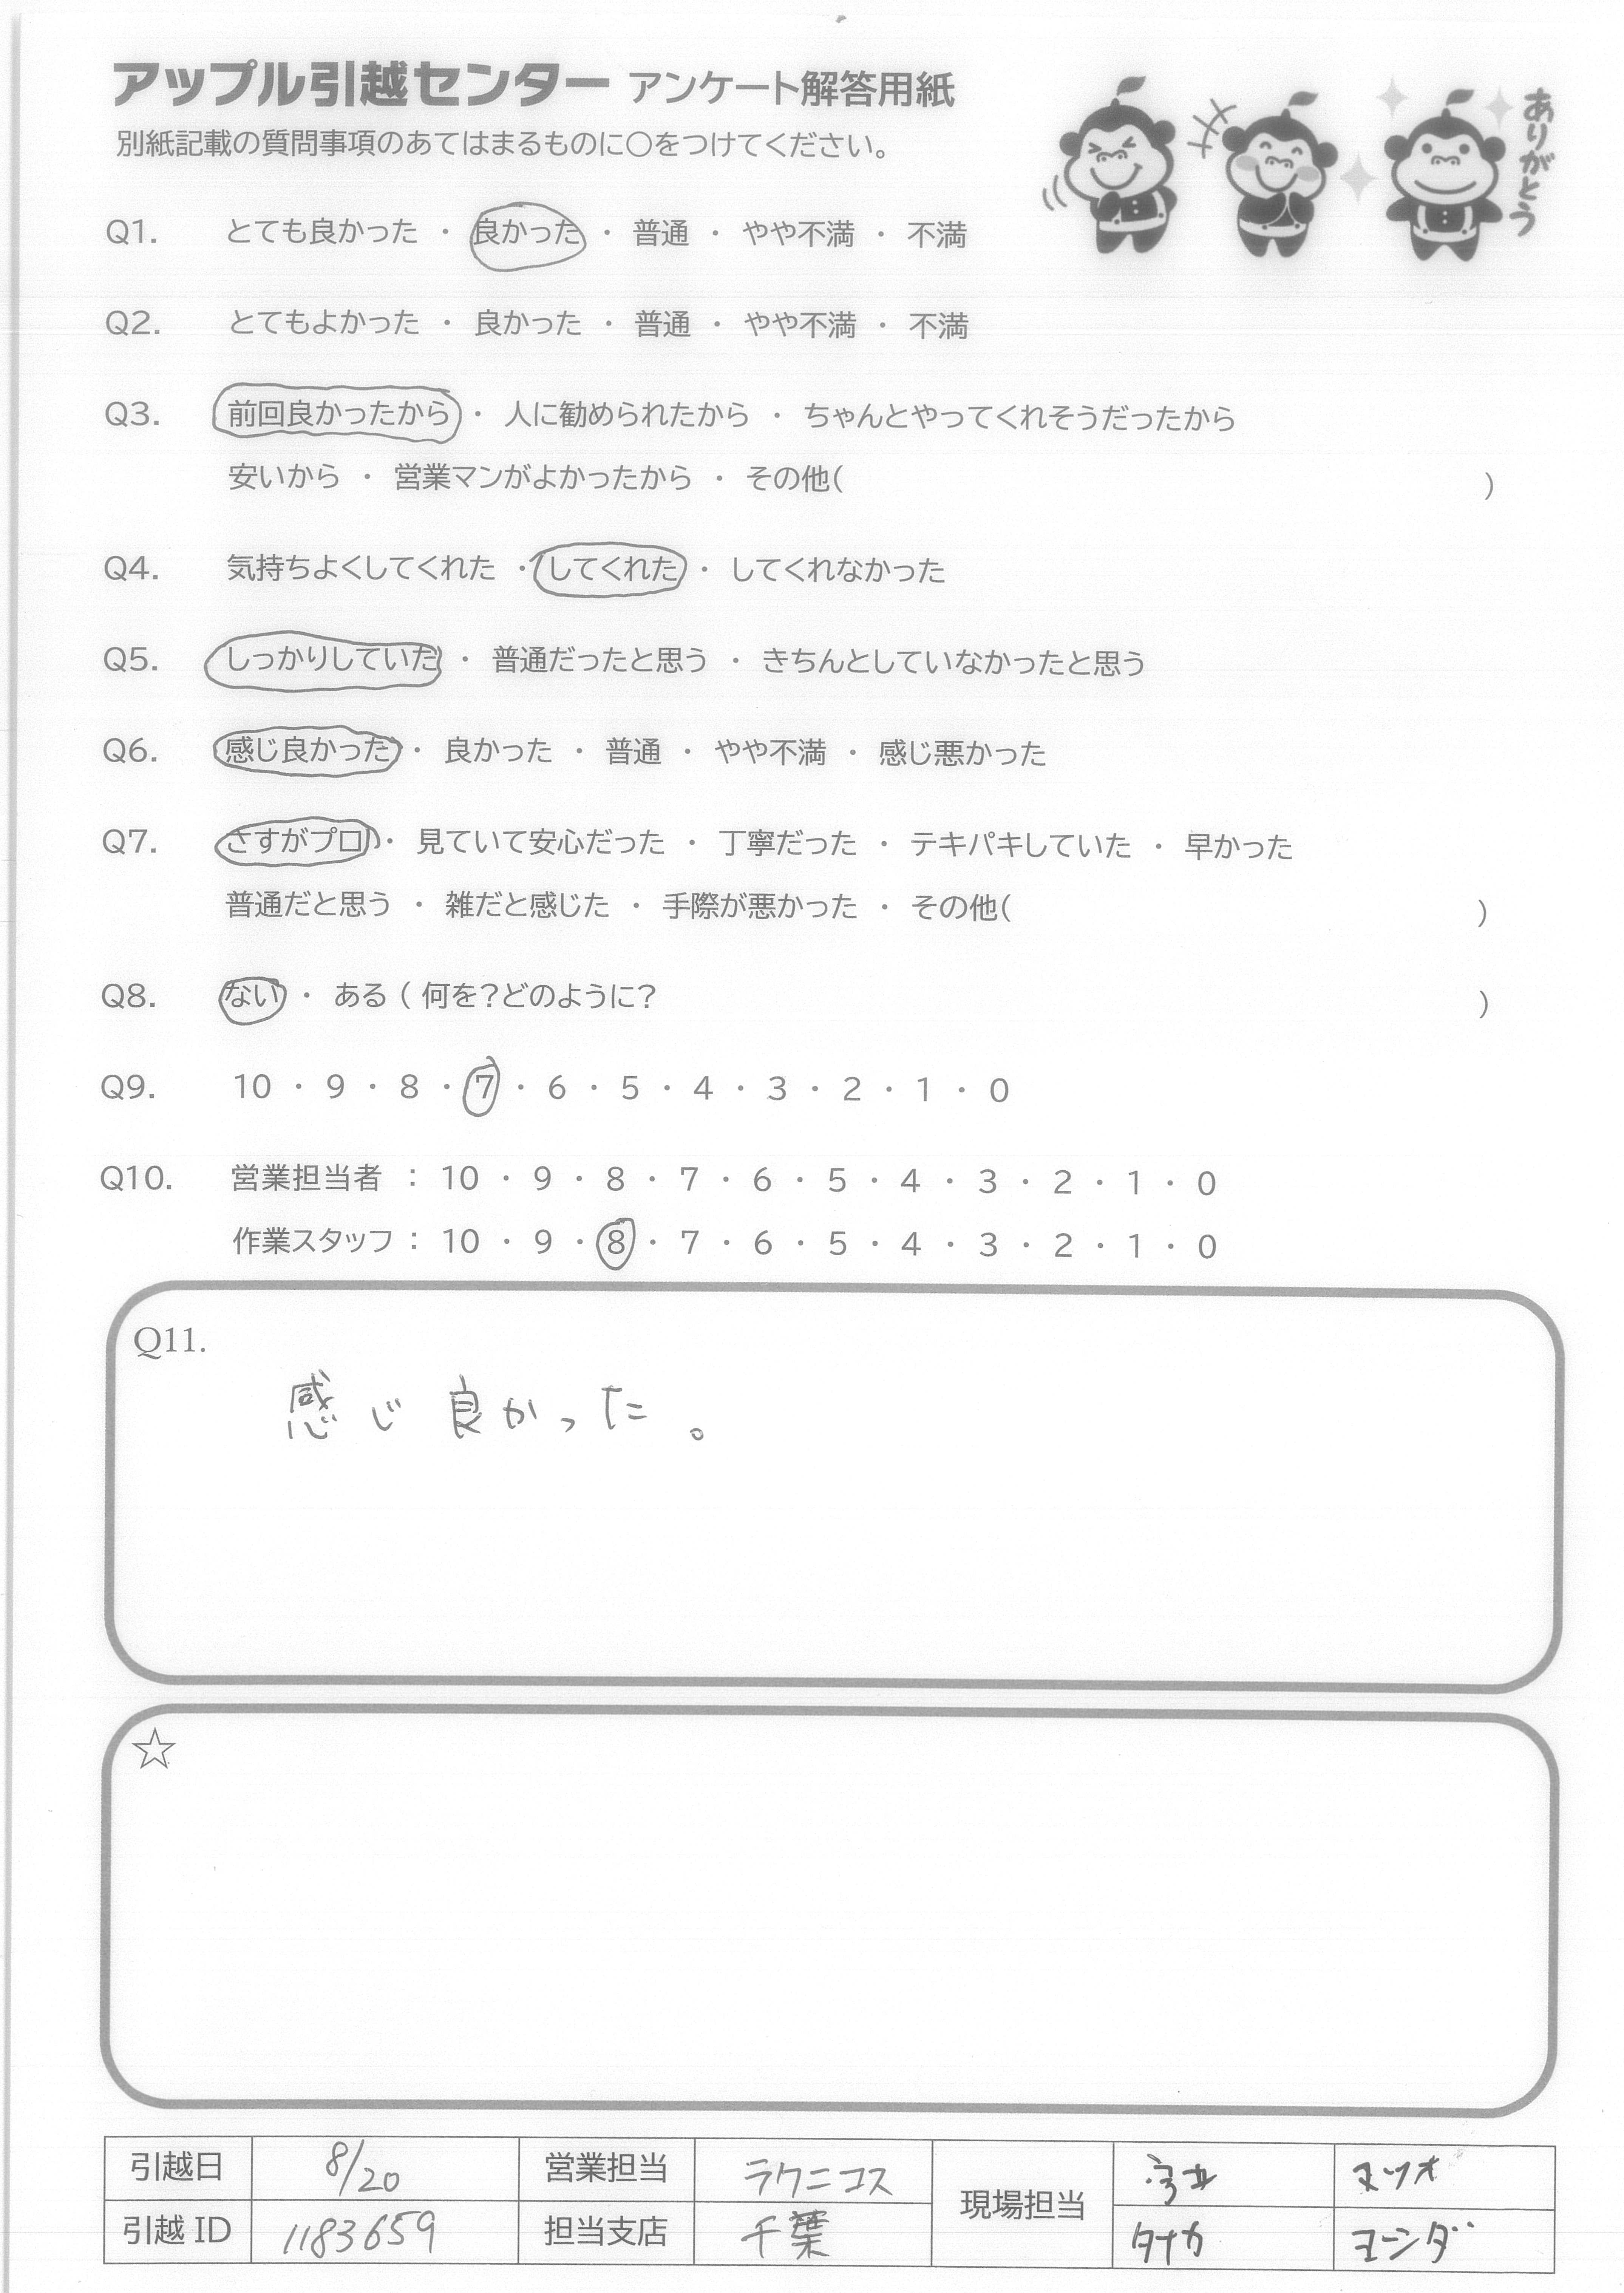 アップル引越センター アンケート解答用紙
別紙記載の質問事項のあてはまるものに〇をつけてください。
ありがとう
Q1. とても良かった ・ 良かった ・ 普通 ・ やや不満 ・ 不満
Q2. とてもよかった ・ 良かった ・ 普通 ・ やや不満 ・ 不満
Q3. 前回良かったから ・ 人に勧められたから ・ ちゃんとやってくれそうだったから
安いから ・ 営業マンがよかったから ・ その他( )
Q4. 気持ちよくしてくれた ・ してくれた ・ してくれなかった
Q5. しっかりしていた ・ 普通だったと思う ・ きちんとしていなかったと思う
Q6. 感じ良かった ・ 良かった ・ 普通 ・ やや不満 ・ 感じ悪かった
Q7. さすがプロ ・ 見ていて安心だった ・ 丁寧だった ・ テキパキしていた ・ 早かった
普通だと思う ・ 雑だと感じた ・ 手際が悪かった ・ その他( )
Q8. ない ・ ある ( 何を?どのように? )
Q9. 10 ・ 9 ・ 8 ・ 7 ・ 6 ・ 5 ・ 4 ・ 3 ・ 2 ・ 1 ・ 0
Q10. 営業担当者 : 10 ・ 9 ・ 8 ・ 7 ・ 6 ・ 5 ・ 4 ・ 3 ・ 2 ・ 1 ・ 0
作業スタッフ : 10 ・ 9 ・ 8 ・ 7 ・ 6 ・ 5 ・ 4 ・ 3 ・ 2 ・ 1 ・ 0
Q11.
感じ良かった。
☆
引越日 8/20 営業担当 ラクニコス 現場担当 マツオ
引越ID 1183659 担当支店 千葉 タナカ ヨーンダ